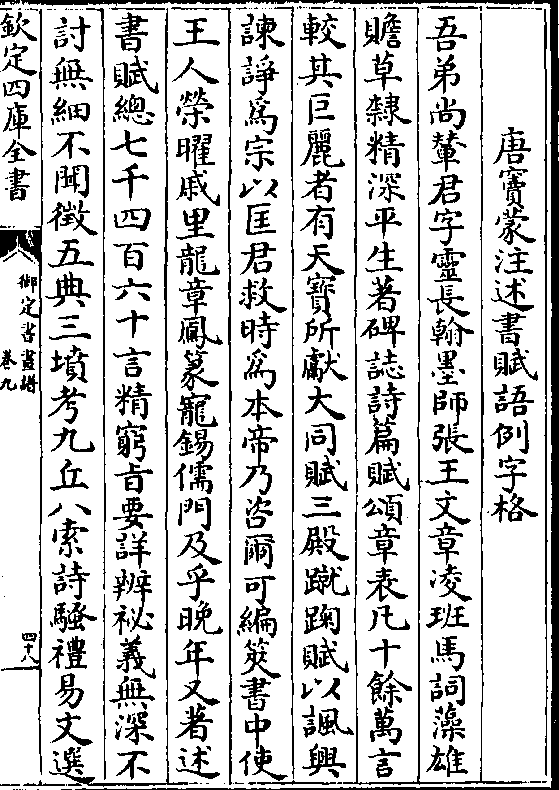 唐竇蒙注述書賦語例字格
吾弟尚輦君字靈長翰墨師張王文章凌班馬詞藻雄
贍草隸精深平生著碑誌詩篇賦頌章表凡十餘萬言
較其巨麗者有天寶所獻大同賦三殿蹴踘賦以諷興
諫諍為宗以匡君救時為本帝乃咨爾可編筴書中使
王人榮曜戚里龍章鳳篆寵錫儒門及乎晚年又著述
書賦總七千四百六十言精窮旨要詳辨祕義無深不
討無細不聞徵五典三墳考九丘八索詩騷禮易文選
欽定四庫全書
御定書畫譜
卷九
四十八